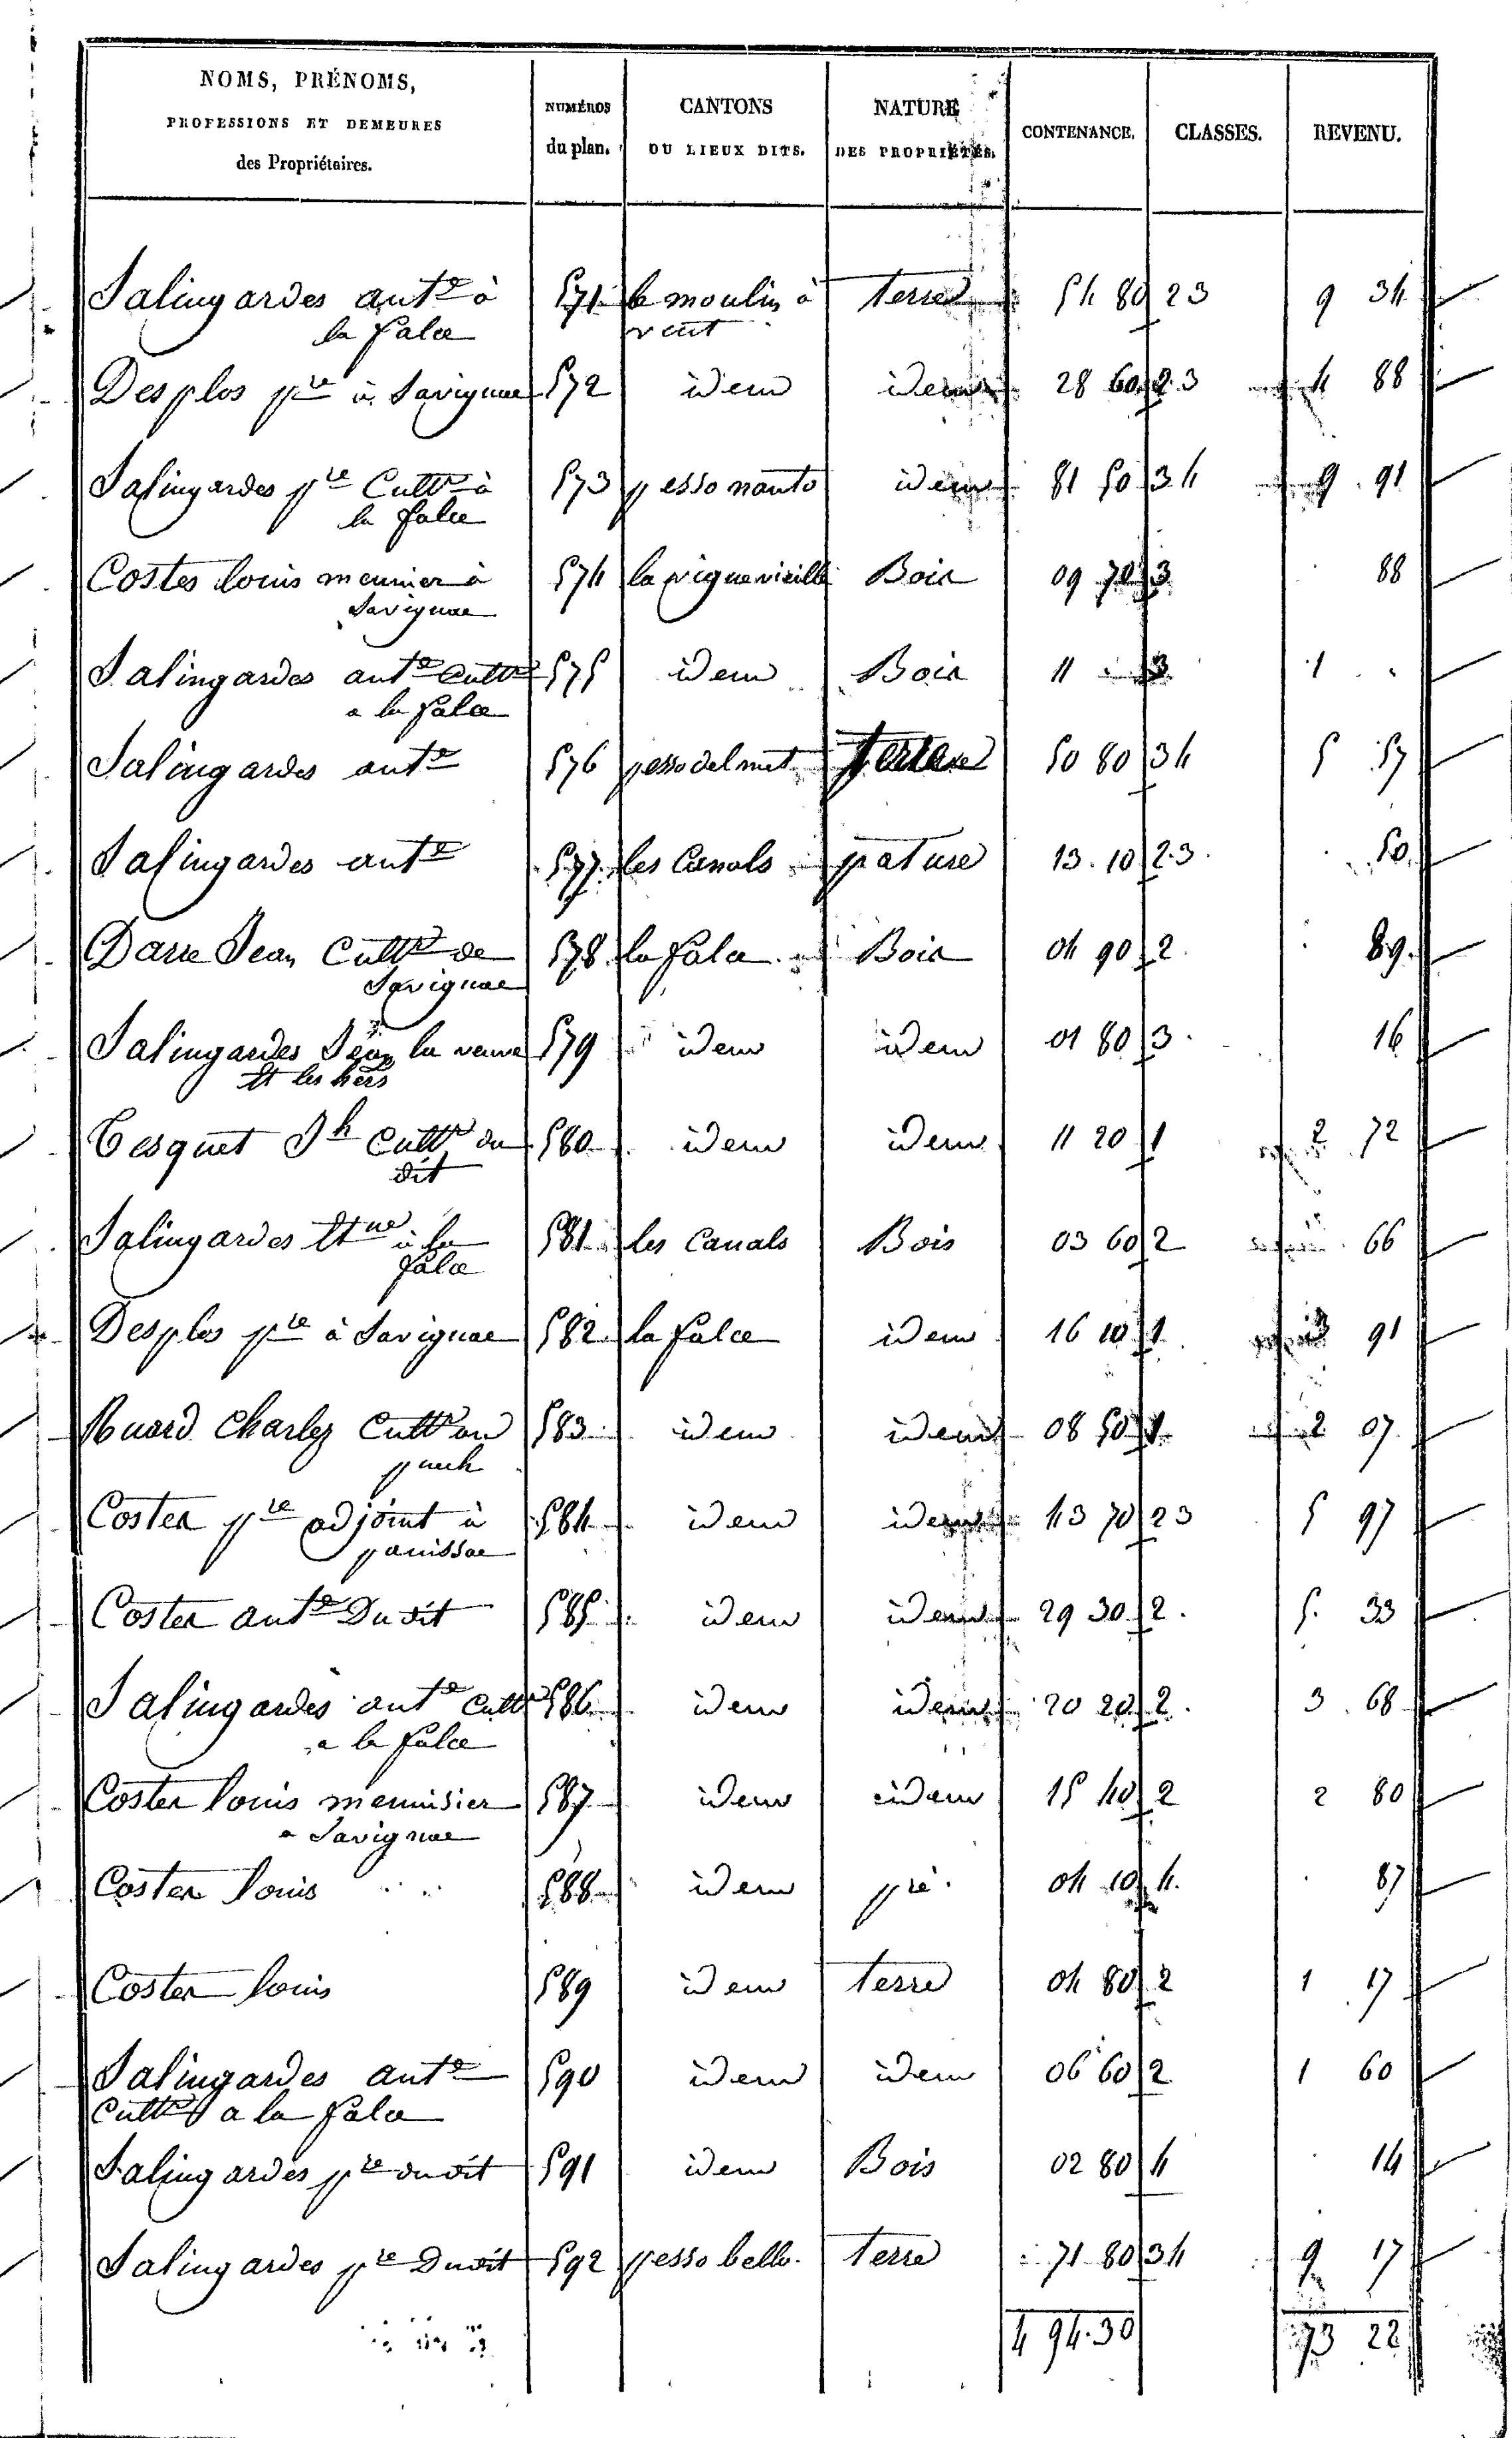 NOMS, PRÉNOMS,
PROFESSIONS ET DEMEURES
des Propriétaires.
NUMÉROS
du plan.
CANTONS
OU LIEUX DITS.
NATURE
DES PROPRIÉTÉS.
CONTENANCE.
CLASSES.
REVENU.
Salingardes ant.e à 571 le moulin à terre 54 80 23 9 34
la falce vent
Desplos p.re à Savignac 572 idem idem 28 60 2.3 4 88
Salingardes p.re Cult.r à 573 pesso nauto idem 81 50 34 9 91
la falce
Costes louis meunier à 574 la vigne vieille Bois 09 70 3 88
Savignac
Salingardes ant.e Cult.r 575 idem Bois 11 3 1
a la falce
Salingardes ant.e 576 pesso del met terre 50 80 34 5 57
Salingardes ant.e 577 les Canals pature 13.10 2.3 50
Darre Jean Cult.r de 578 la falce Bois 04 90 2 89
Savignac
Salingardes Jean la veuve 579 idem idem 01 80 3 16
et les hers
Tesquet Jh Cult.r du 580 idem idem 11 20 1 2 72
dit
Salingardes Et.ne à la 581 les Canals Bois 03 60 2 66
falce
Desplos p.re à Savignac 582 la falce idem 16 10 1 3 91
Muard Charles Cult.r au 583 idem idem 08 50 1 2 07
puech
Costes p.re adjoint à 584 idem idem 43 70 23 5 97
panissac
Costes ant.e Du dit 585 idem idem 29 30 2 5 33
Salingardes ant.e Cult.r 586 idem idem 20 20 2 3 68
a la falce
Costes louis menuisier 587 idem idem 15 40 2 2 80
a Savignac
Costes louis 588 idem pré 04 10 4 87
Costes louis 589 idem terre 04 80 2 1 17
Salingardes ant.e 590 idem idem 06 60 2 1 60
Cult.r a la falce
Salingardes p.re du dit 591 idem Bois 02 80 4 14
Salingardes p.re Du dit 592 pesso bello terre 71 80 34 9 17
4 94.30 73 22